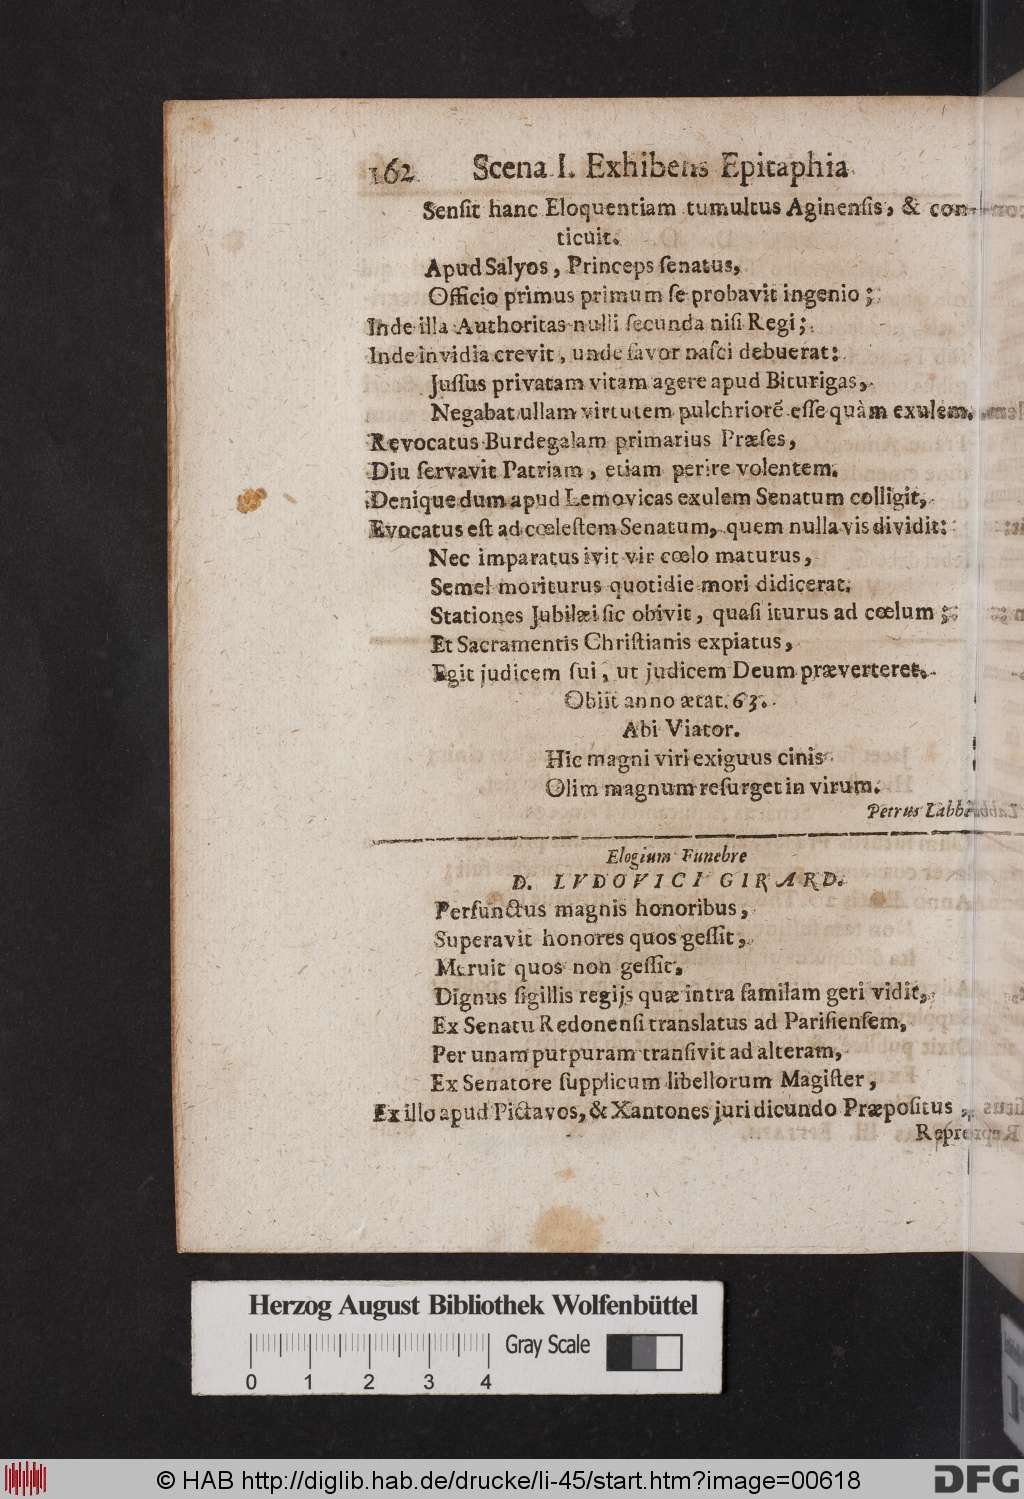 162 Scena I. Exhibens Epitaphia
Senſit hanc Eloquentiam tumultus Aginenſis, & con-
ticuit.
Apud Salyos, Princeps ſenatus,
Officio primus primum ſe probavit ingenio;
Inde illa Authoritas nulli ſecunda niſi Regi;
Inde invidia crevit, unde favor naſci debuerat:
Juſſus privatam vitam agere apud Biturigas,
Negabat ullam virtutem pulchriorẽ eſſe quàm exulem.
Revocatus Burdegalam primarius Præſes,
Diu ſervavit Patriam, etiam perire volentem.
Denique dum apud Lemovicas exulem Senatum colligit,
Evocatus eſt ad cœleſtem Senatum, quem nulla vis dividit:
Nec imparatus ivit vir cœlo maturus,
Semel moriturus quotidie mori didicerat.
Stationes Jubilæi ſic obivit, quaſi iturus ad cœlum;
Et Sacramentis Chriſtianis expiatus,
Egit judicem ſui, ut judicem Deum præverteret.
Obiit anno ætat. 63.
Abi Viator.
Hic magni viri exiguus cinis
Olim magnum reſurget in virum.
Petrus Labbè
Elogium Funebre
D. LVDOVICI GIRARD.
Perfunctus magnis honoribus,
Superavit honores quos geſſit,
Meruit quos non geſſit.
Dignus ſigillis regijs quæ intra familam geri vidit,
Ex Senatu Redonenſi translatus ad Pariſienſem,
Per unam purpuram tranſivit ad alteram,
Ex Senatore ſupplicum libellorum Magiſter,
Ex illo apud Pictavos, & Xantones juri dicundo Præpoſitus,
Herzog August Bibliothek Wolfenbüttel
Gray Scale
0 1 2 3 4
© HAB http://diglib.hab.de/drucke/li-45/start.htm?image=00618
DFG